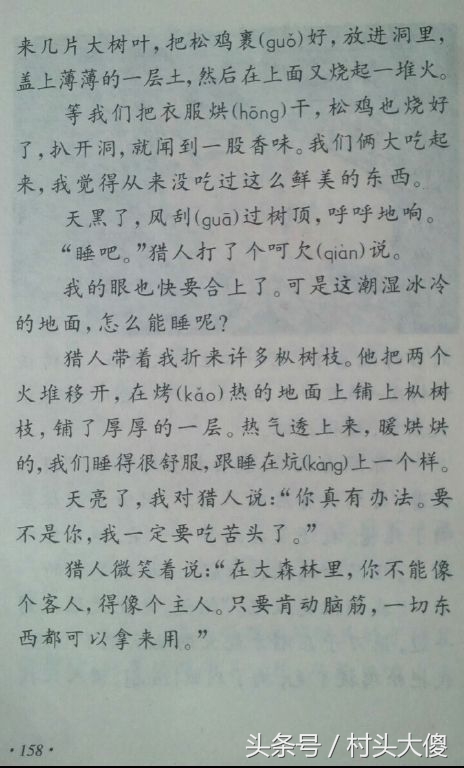 来几片大树叶，把松鸡裹(guǒ)好，放进洞里，
盖上薄薄的一层土，然后在上面又烧起一堆火。
等我们把衣服烘(hōng)干，松鸡也烧好
了，扒开洞，就闻到一股香味。我们俩大吃起
来，我觉得从来没吃过这么鲜美的东西。
天黑了，风刮(guā)过树顶，呼呼地响。
“睡吧。”猎人打了个呵欠(qiàn)说。
我的眼也快要合上了。可是这潮湿冰冷
的地面，怎么能睡呢？
猎人带着我折来许多枞树枝。他把两个
火堆移开，在烤(kǎo)热的地面上铺上枞树
枝，铺了厚厚的一层。热气透上来，暖烘烘
的，我们睡得很舒服，跟睡在炕(kàng)上一个样。
天亮了，我对猎人说：“你真有办法。要
不是你，我一定要吃苦头了。”
猎人微笑着说：“在大森林里，你不能像
个客人，得像个主人。只要肯动脑筋，一切东
西都可以拿来用。”
·158·
头条号/村头大傻